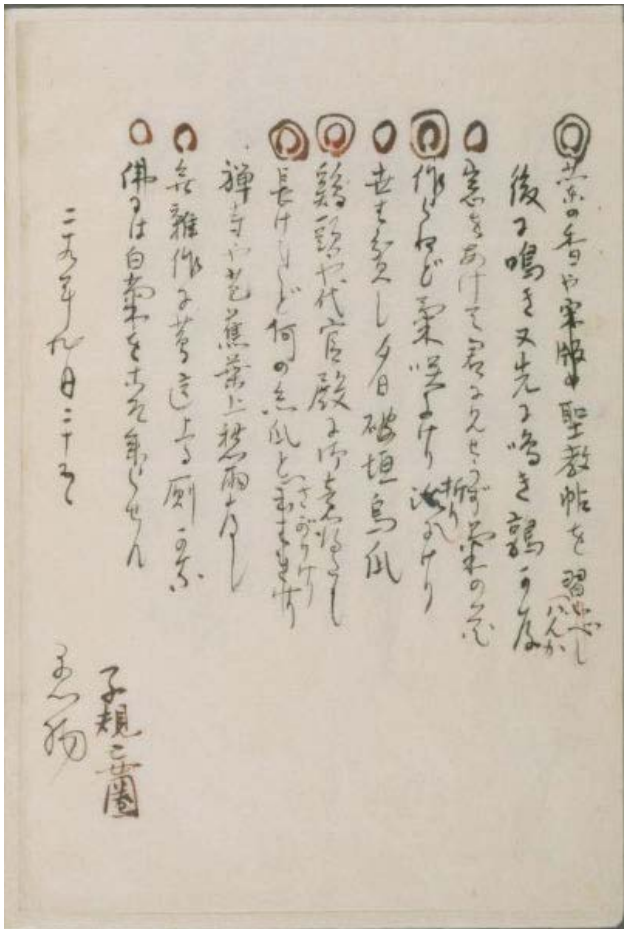 の香や宋版の聖教帖を習 はんか
後に鳴き又先に鳴き鶉可な
窓をあけて君に見せうず菊の花
作らねど菊咲にけり折りにけり
世は貧し夕日破垣烏瓜
鶏頭や代官殿に御意得たし
長けれど何の糸瓜とさがりけり
禅寺や芭蕉葉上愁雨なし
無雑作に蔦這上る厠可な
佛には白菊をこそ参らせん
二十九年九月二十五日
子規